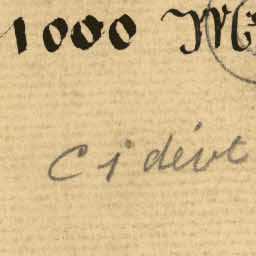 1000 M
C i dévt